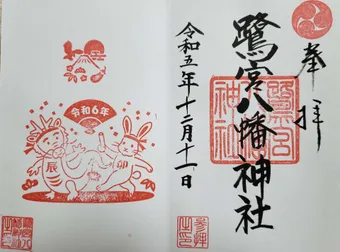 奉拝
鷺宮八幡神社
令和五年十二月十一日
鷺宮八幡神社
参拝之印
令和6年
辰
卯